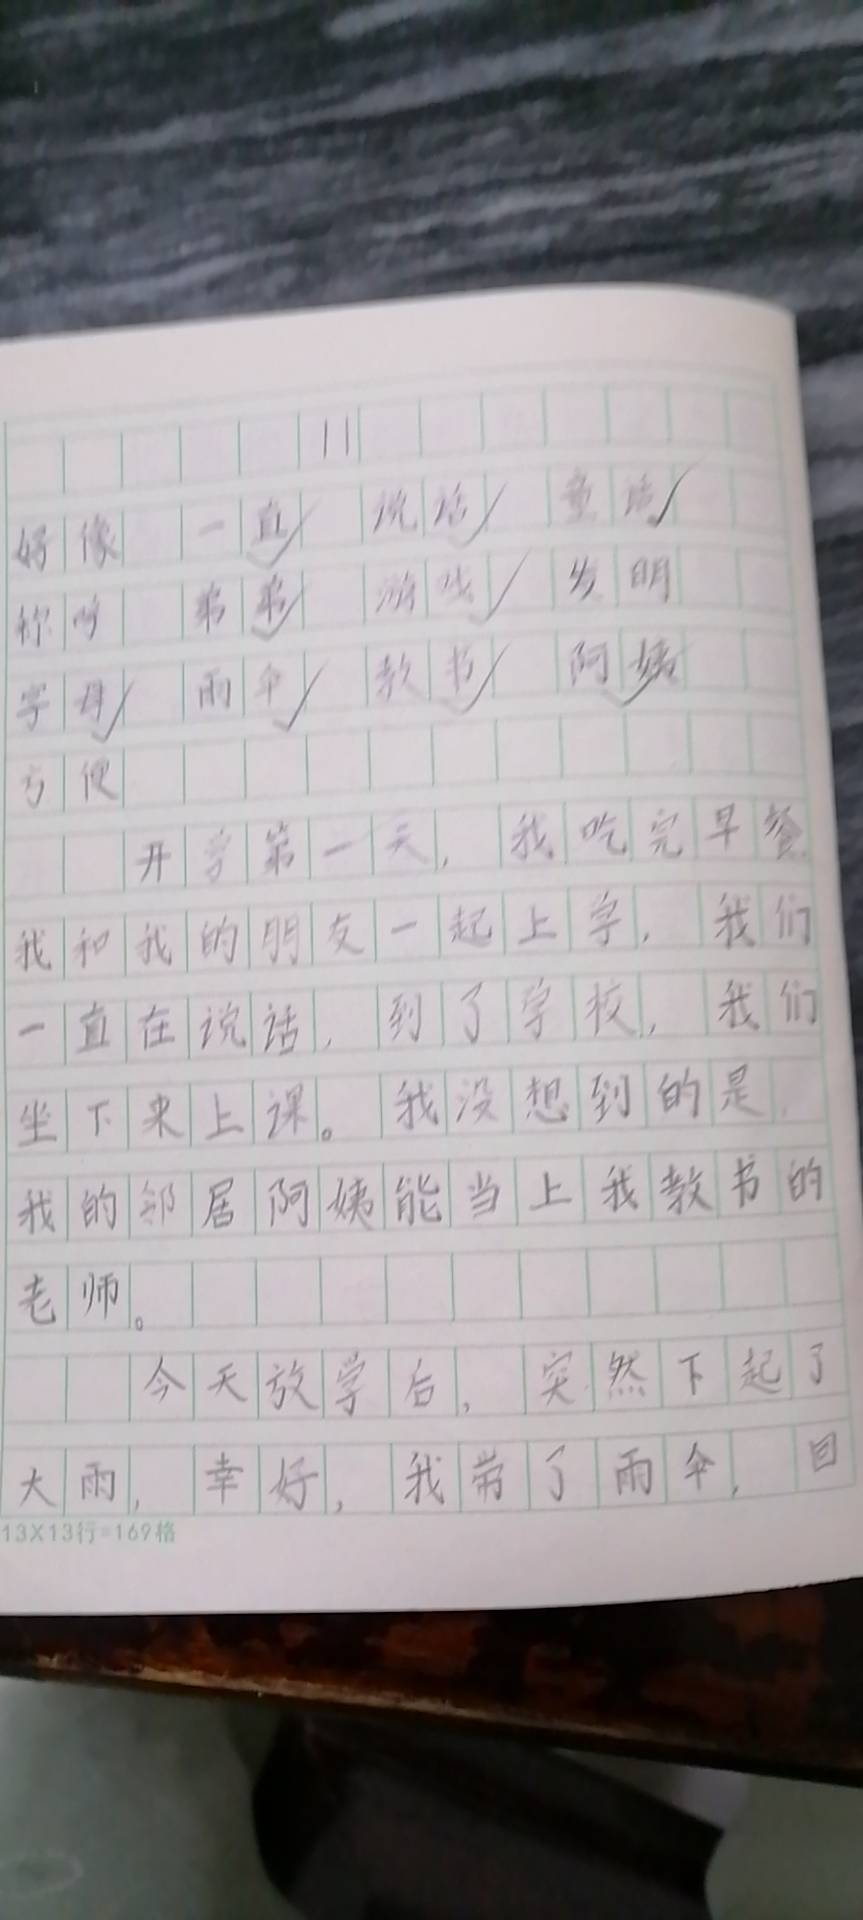 11
好像 一直 说话 童话
称呼 弟弟 游戏 发明
字母 雨伞 教书 阿姨
方便
开学第一天，我吃完早餐
我和我的朋友一起上学，我们
一直在说话，到了学校，我们
坐下来上课。我没想到的是，
我的邻居阿姨能当上我教书的
老师。
今天放学后，突然下起了
大雨，幸好，我带了雨伞，回
13X13行=169格